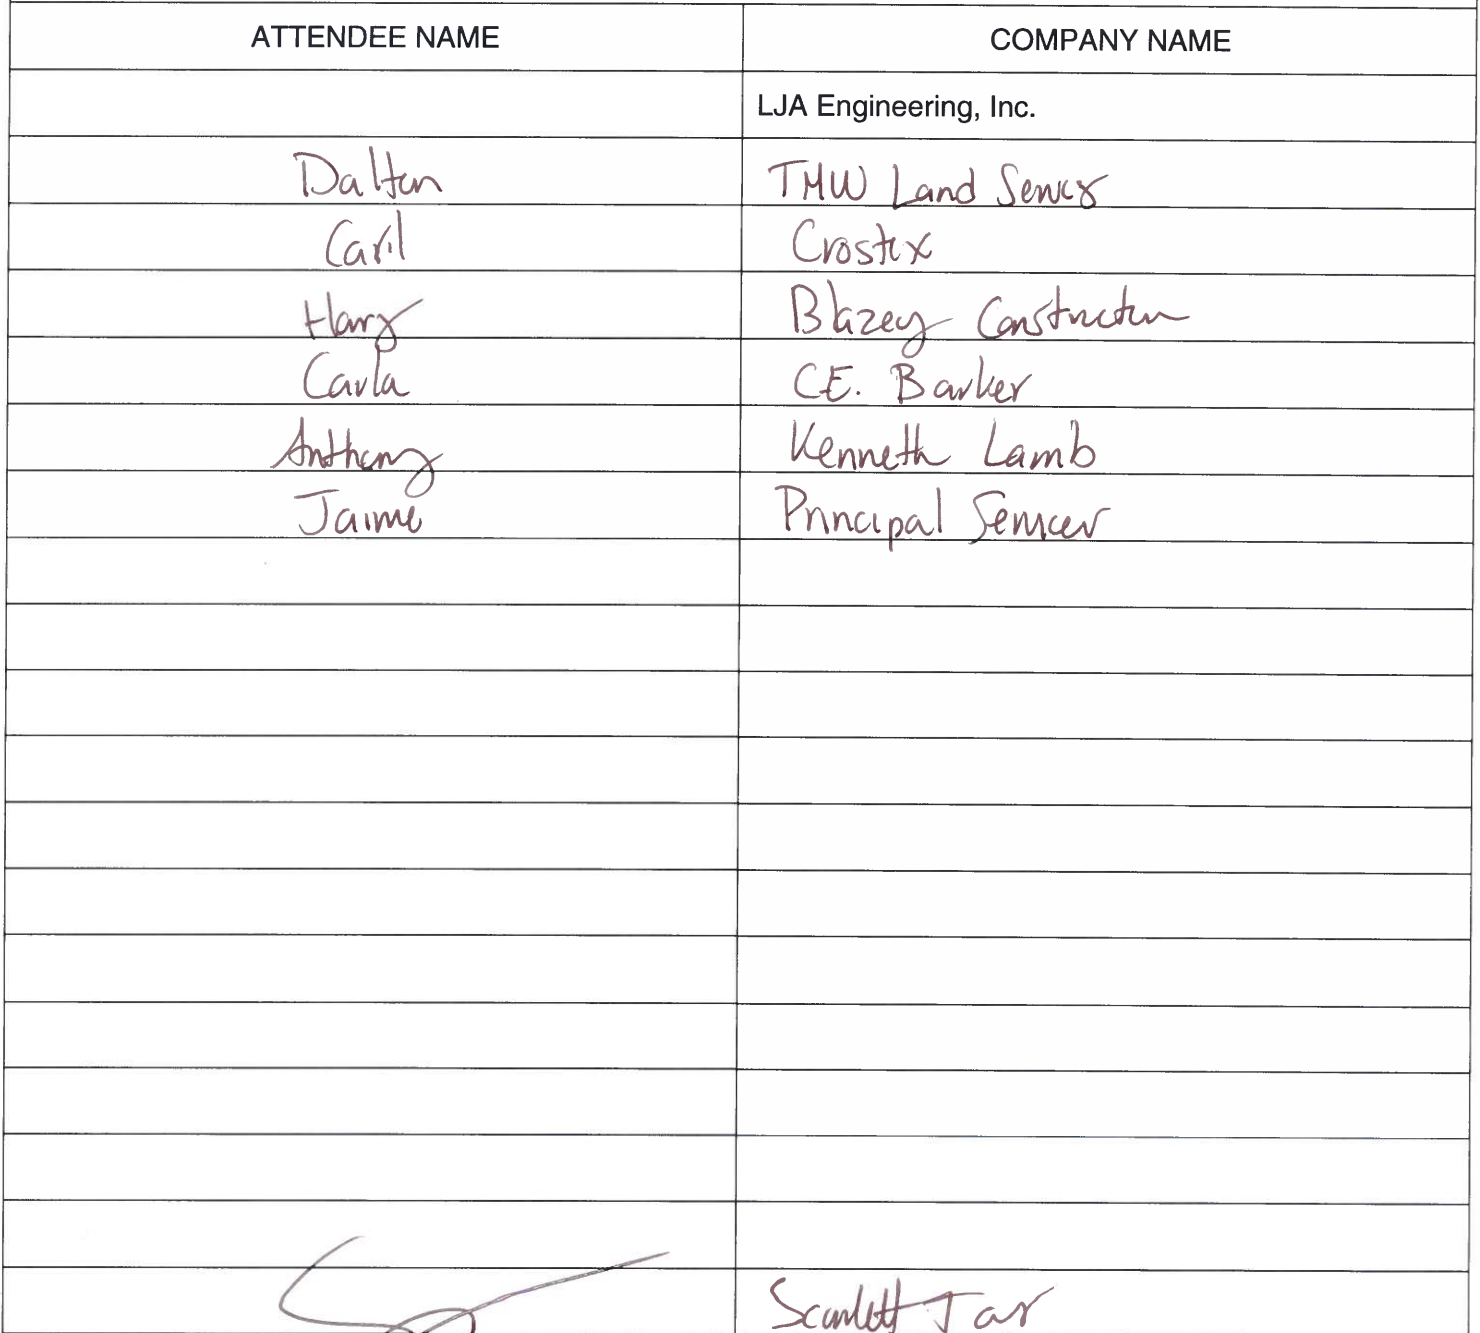 ATTENDEE NAME COMPANY NAME
LJA Engineering, Inc.
Dalton TMW Land
Caril Crostex
Harry Blazey Construction
Carla CE. Barker
Anthony Kenneth Lamb
Jaime Principal
Scarlett